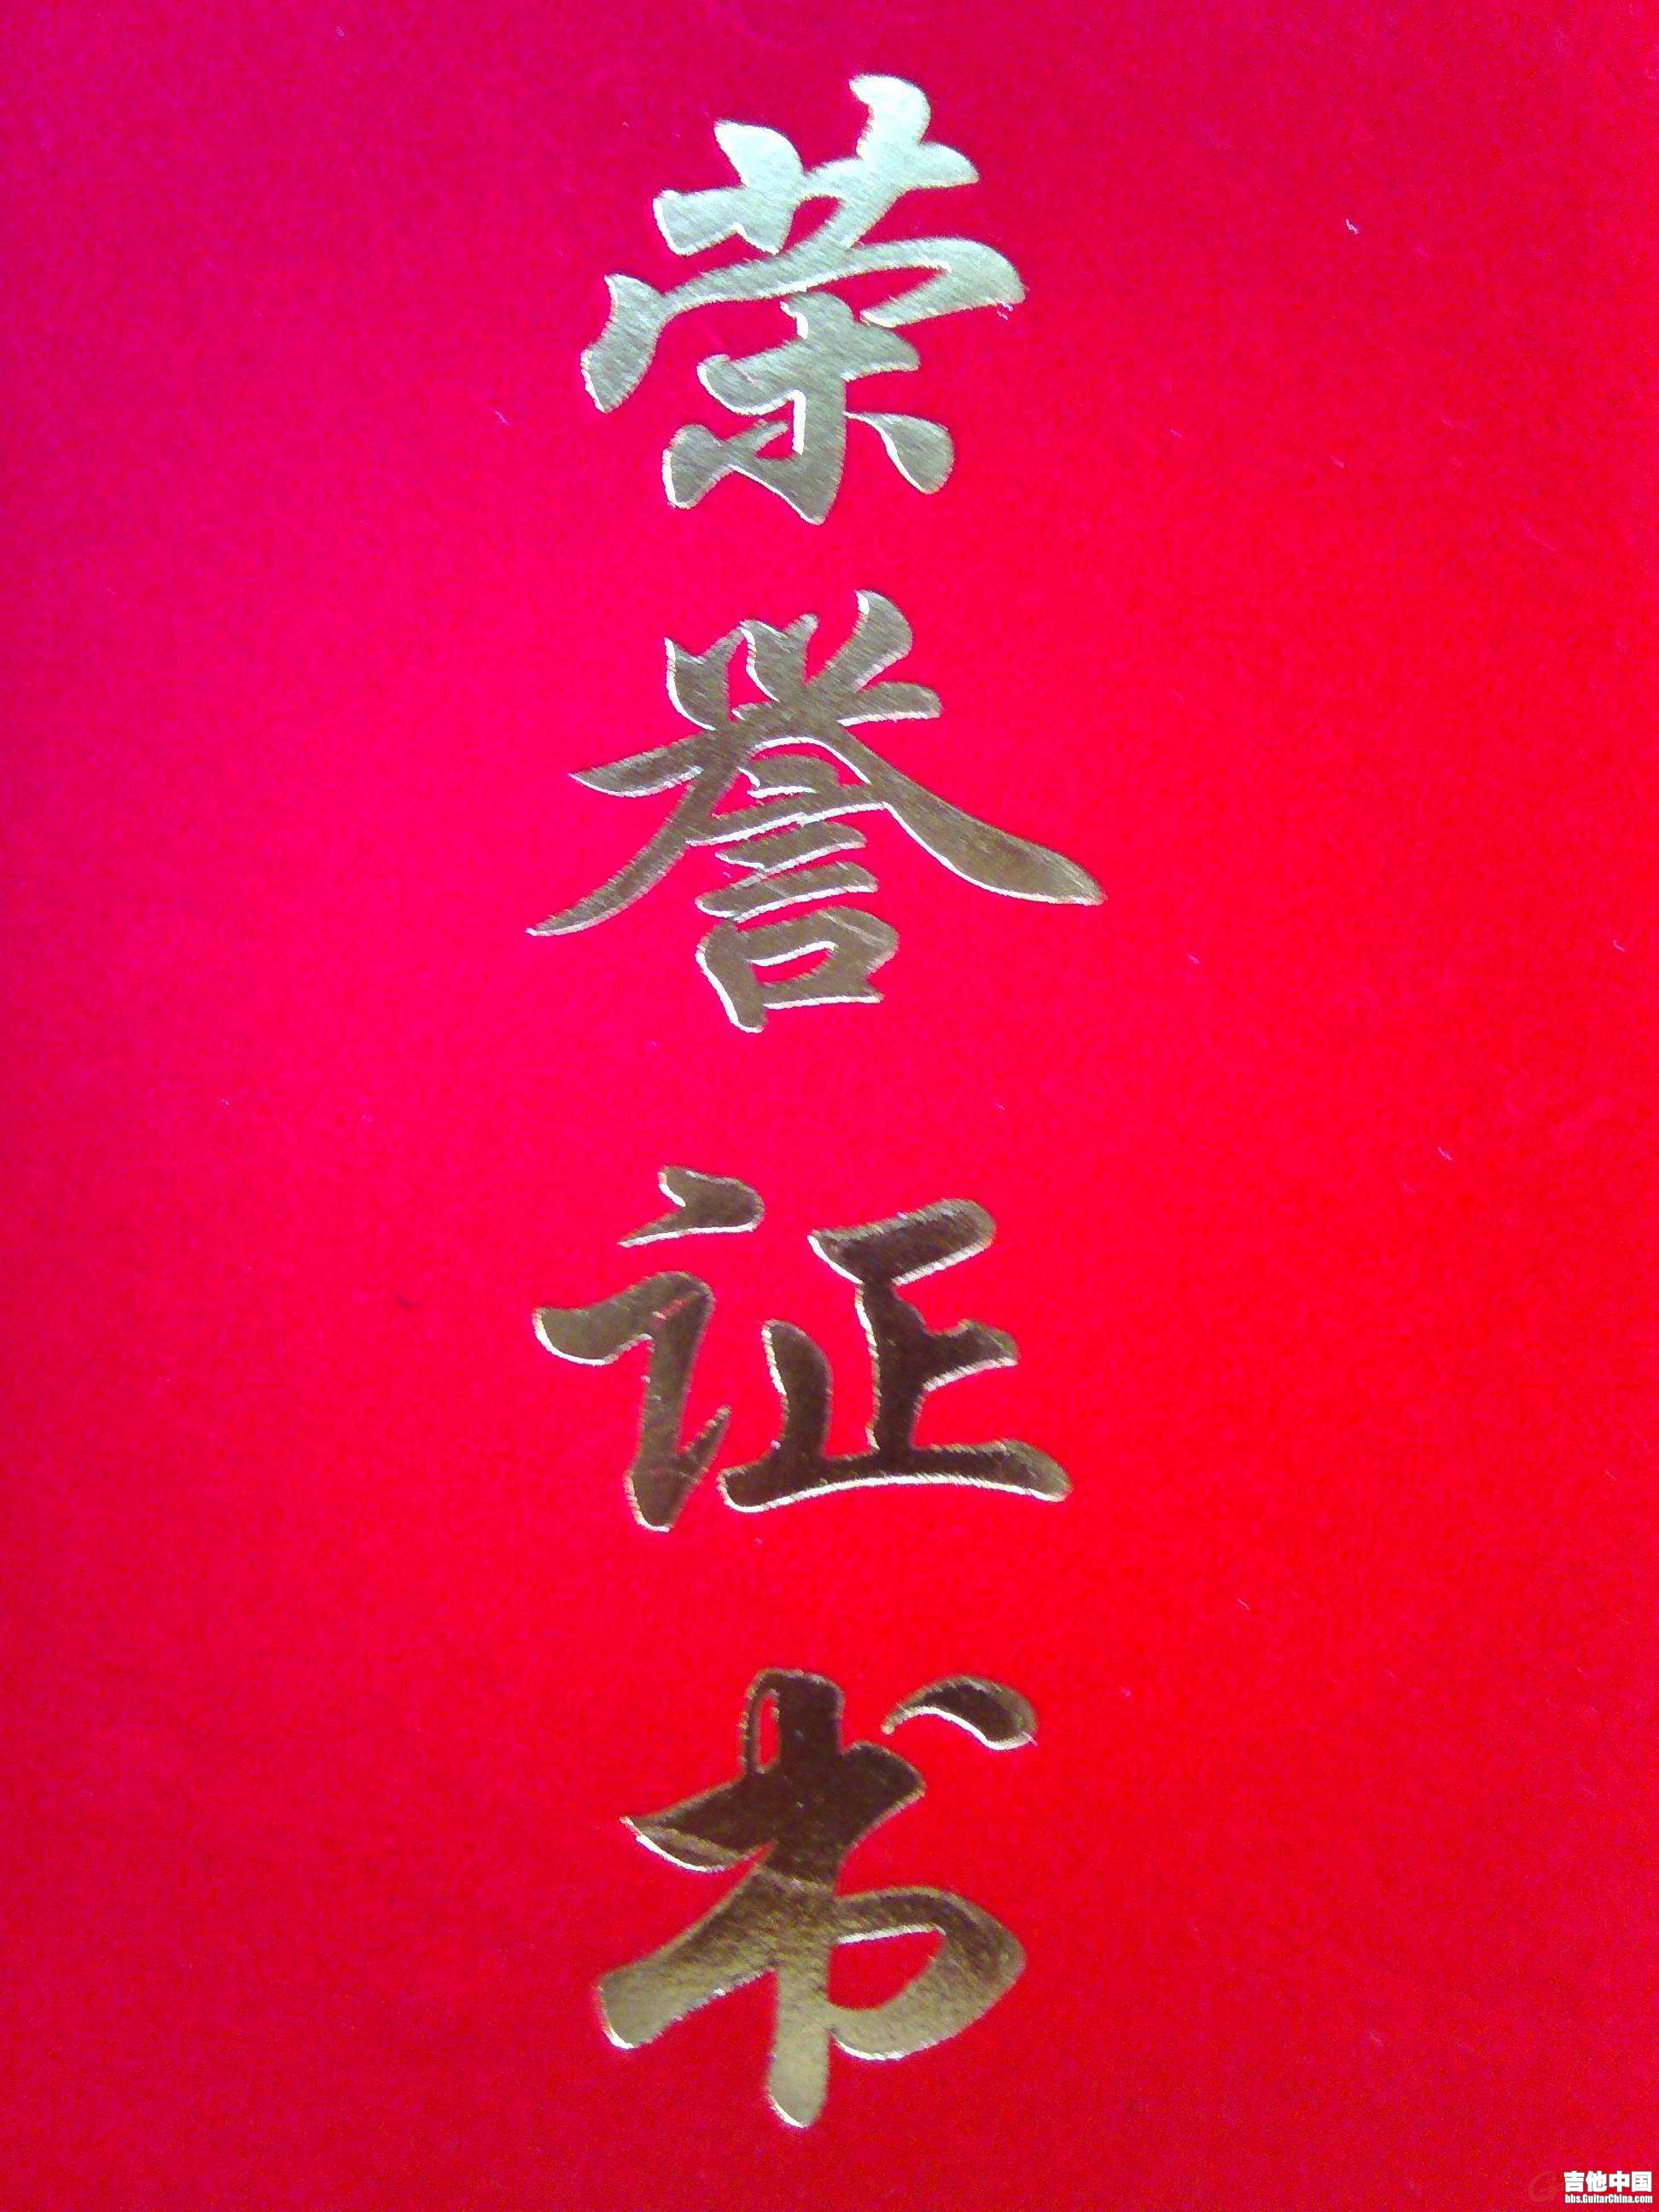 荣誉证书
吉他中国
bbs.GuitarChina.com